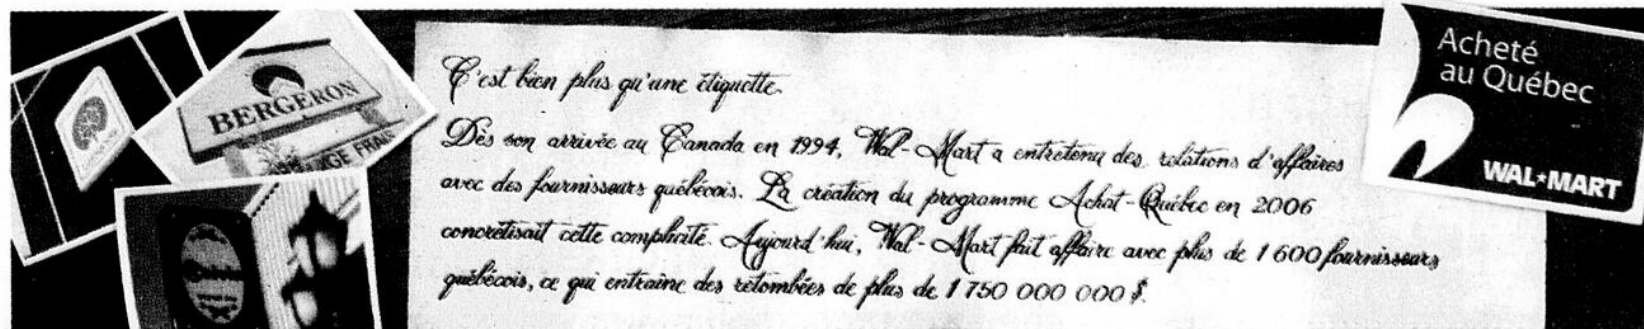 BERGERON
AGE FRAIS
C'est bien plus qu'une étiquette.
Dès son arrivée au Canada en 1994, Wal-Mart a entretenu des relations d'affaires
avec des fournisseurs québécois. La création du programme Achat-Québec en 2006
concrétisait cette complicité. Aujourd'hui, Wal-Mart fait affaire avec plus de 1 600 fournisseurs
québécois, ce qui entraîne des retombées de plus de 1 750 000 000 $.
Acheté
au Québec
WAL★MART